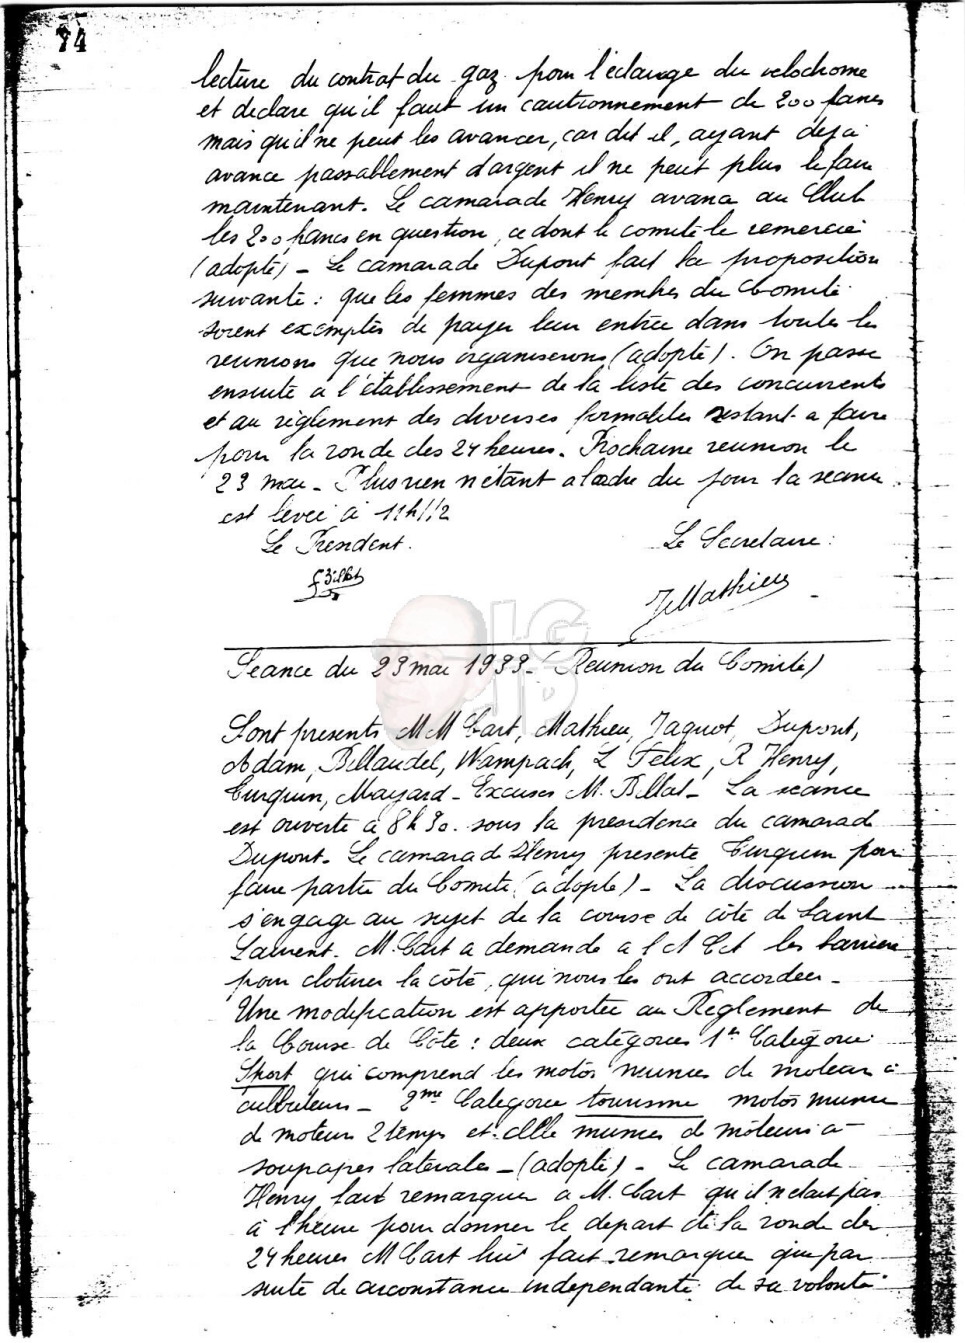 74
lecture du contrat du gaz pour l'éclairage du velodrome
et declare qu'il faut un cautionnement de 200 francs
mais qu'il ne peut les avancer, car dit il, ayant deja
avance passablement d'argent il ne peut plus le faire
maintenant. Le camarade Henry avança au Club
les 200 francs en question, ce dont le comité le remercie
(adopté) - Le camarade Dupont fait la proposition
suivante : que les femmes des membres du Comité
soient exemptés de payer leur entrée dans toutes les
reunions que nous organiserons (adopté). On passe
ensuite a l'établissement de la liste des concurrents
et au règlement des diverses formalités restant a faire
pour la ronde des 24 heures. Prochaine reunion le
23 mai - Plus rien n'étant a l'ordre du jour la seance
est levée à 11h 1/2
Le President. Le Secretaire :
JMathieu
Seance du 23 mai 1933 - (Reunion du Comité)
Sont presents MM Cart, Mathieu, Jaquot, Dupont,
Adam, Billaudel, Wampach, L Felix, R Henry,
Curquin, Mayard - Excusés M. Billat - La seance
est ouverte à 8h30. sous la presidence du camarade
Dupont. Le camarade Henry presente Curquin pour
faire partie du Comité (adopté) - La discussion
s'engage au sujet de la course de côte de Saint
Laurent. M. Cart a demande a l' les barrieres
pour cloturer la côte, qui nous les ont accordees -
Une modification est apportée au Reglement de
la Course de Côte : deux catégories 1re Catégorie
Sport qui comprend les motos munies de moteurs à
culbuteurs - 2me Categorie tourisme motos munies
de moteurs 2 temps et celle munies de moteurs à
soupapes laterales - (adopté) - Le camarade
Henry fait remarquer a M. Cart qu'il n'etait pas
à l'heure pour donner le depart de la ronde des
24 heures M Cart lui fait remarquer que par
suite de circonstance independante de sa volonté